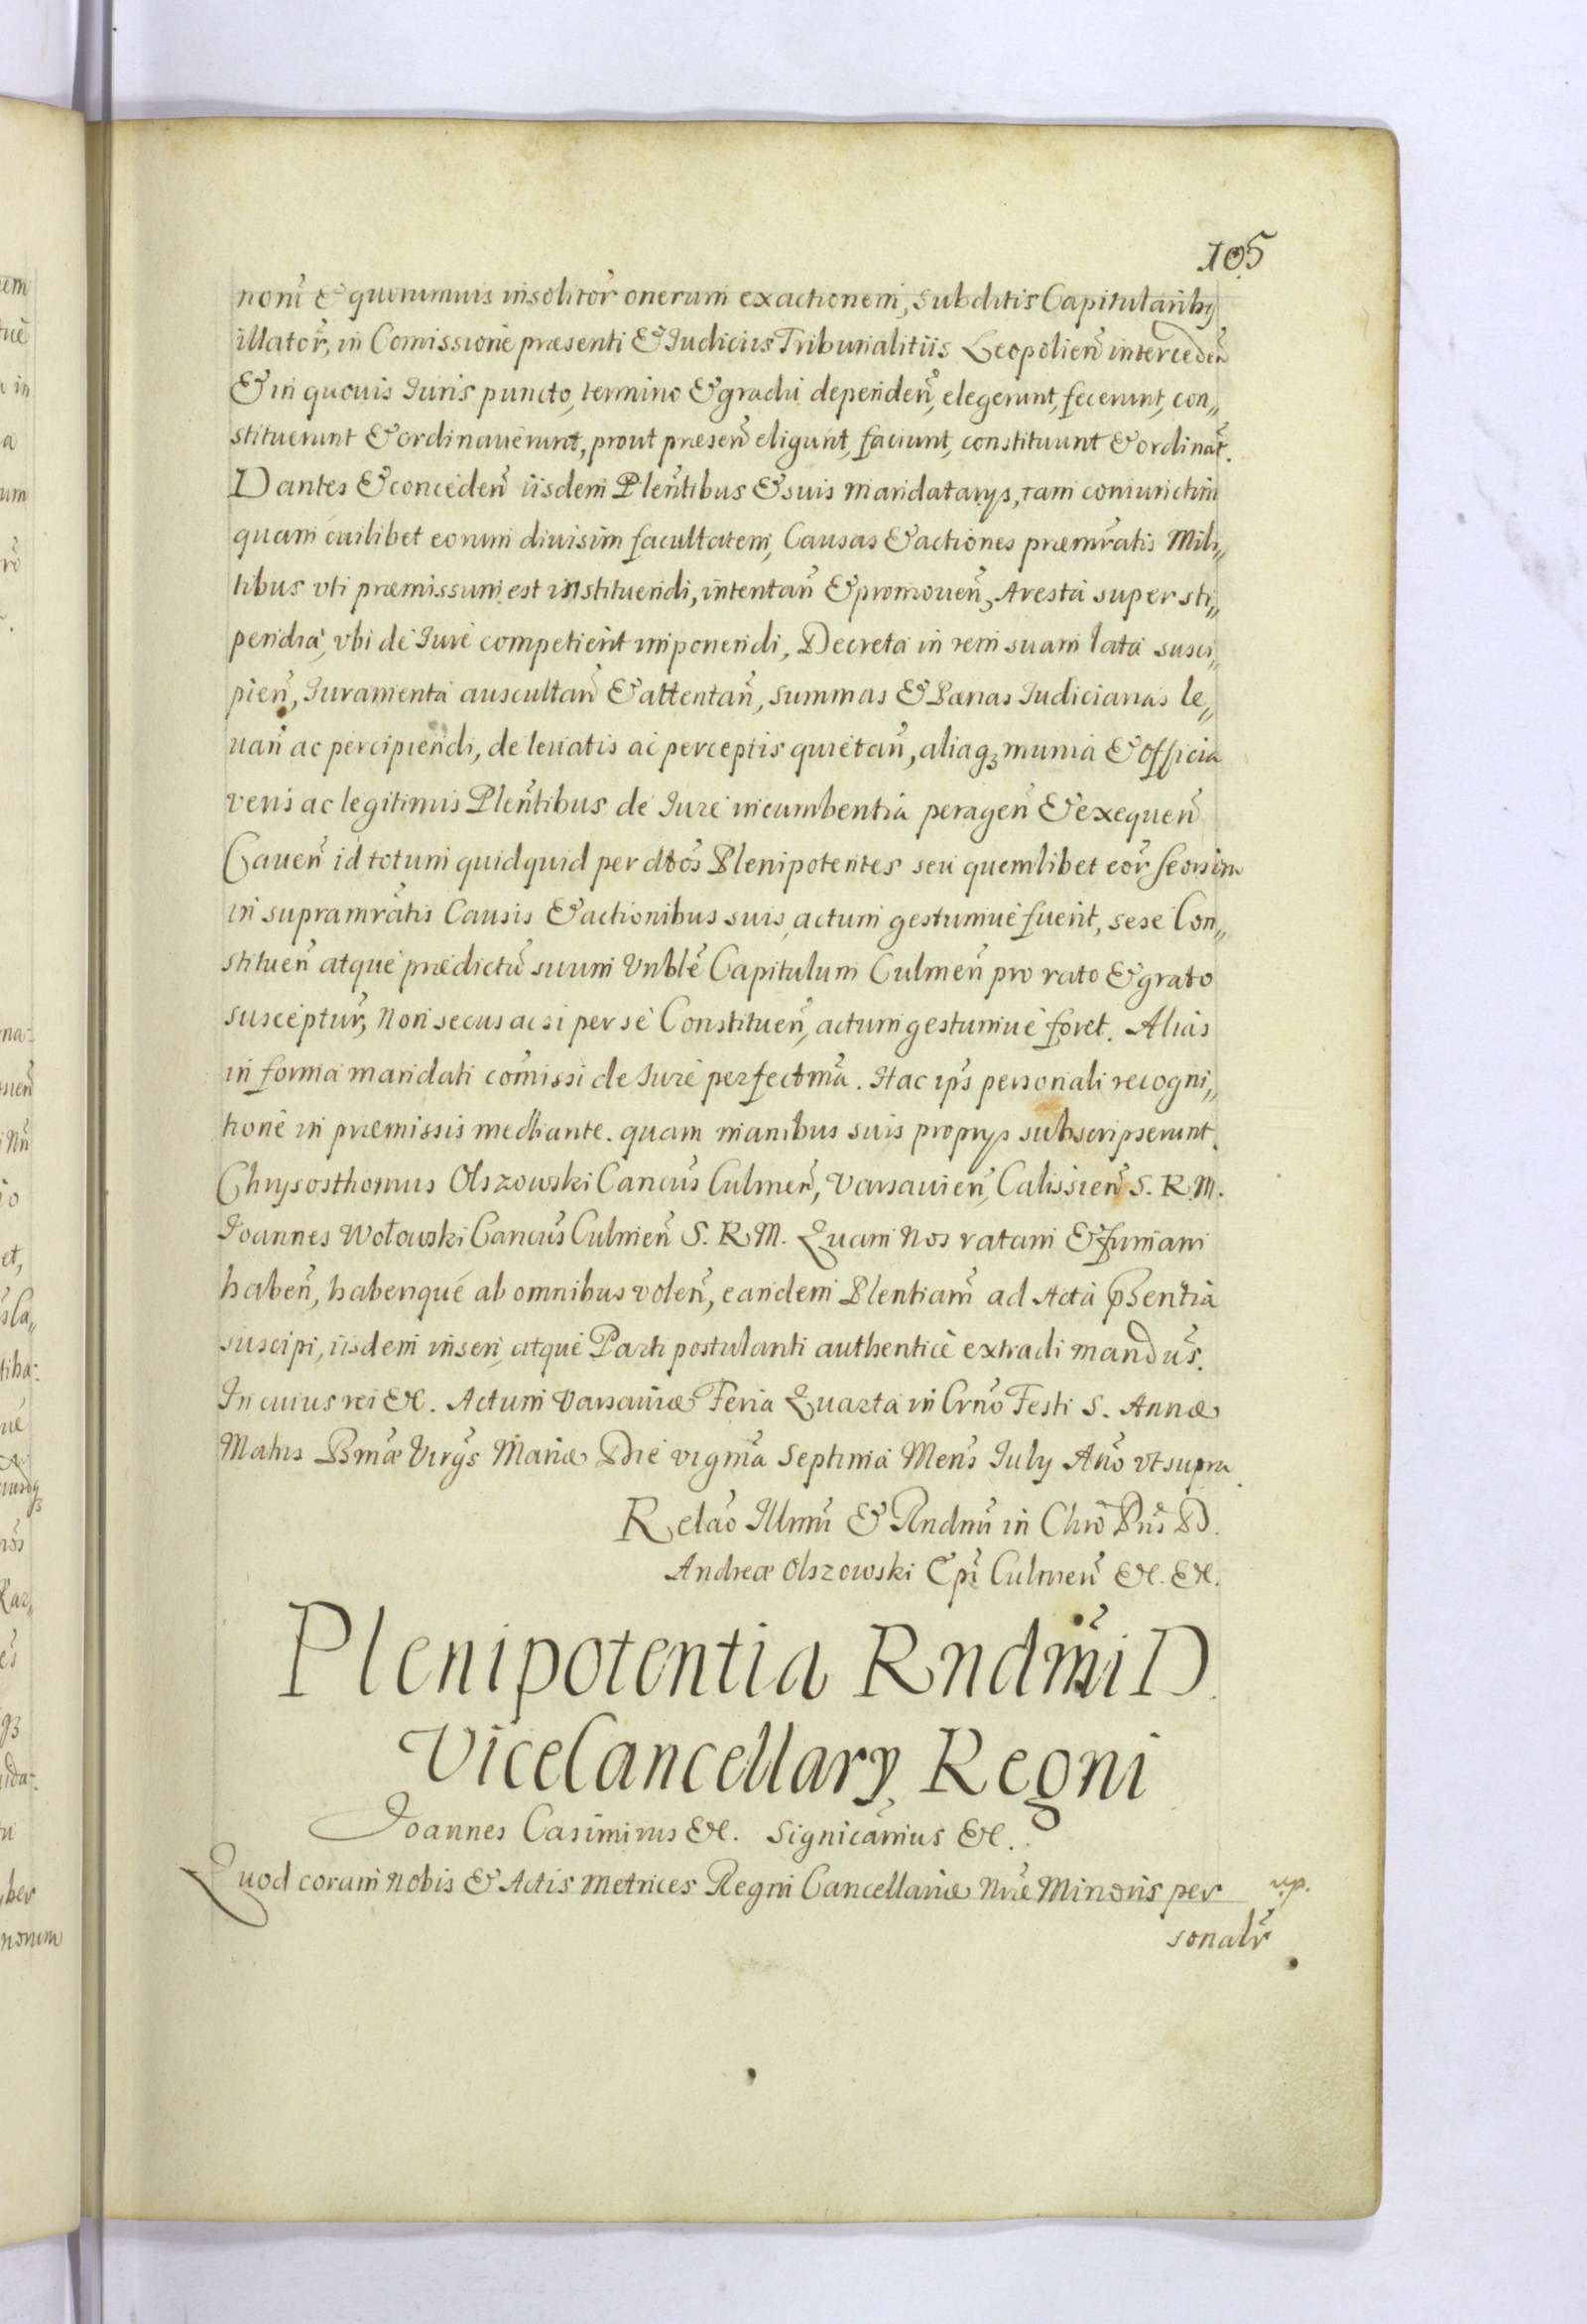 105
num̃ & quorumuis insolitor̃ onerum exactionem, subditis Capitularibȝ
illator̃, in Comissione præsenti & Iudiciis Tribunalitiis Leopolien̄ interceden̄
& in quouis Iuris puncto, termino & gradu dependen̄, elegerunt, fecerunt, con„
stituerunt & ordinauerunt, prout præsen̄ eligunt, faciunt, constituunt & ordinãt.
Dantes & conceden̄ iisdem Plen̄tibus & suis mandatarys, tam coniunctim
quam cuilibet eorum diuisim facultatem, Causas & actiones præmr̃atis Mili„
tibus vti præmissum est instituendi, intentan̄ & promouen̄, Aresta super sti„
pendia, vbi de Iure competierit imponendi, Decreta in rem suam lata susci„
pien̄, Iuramenta auscultan̄ & attentan̄, summas & Pænas Iudiciarias le„
uan̄ ac percipiendi, de leuatis ac perceptis quietan̄, aliaqȝ munia & officia
veris ac legitimis Plen̄tibus de Iure incumbentia peragen̄ & exequen̄
Cauen̄ id totum quidquid per dctos Plenipotentes seu quemlibet eor̃ seorsim
in supramr̃atis Causis & actionibus suis, actum gestumue fuerit, sese Con„
stituen̄ atque prædictũ suum Vnblẽ Capitulum Culmen̄ pro rato & grato
susceptur̃, Non secus ac si per se Constituen̄, actum gestumue foret. Alias
in forma mandati com̃issi de Iure perfectmã. Hac ips̃ personali recogni„
tione in præmissis mediante. quam manibus suis proprys subscripserunt.
Chrysosthomus Olszowski Cancus̃ Culmen̄, Varsauien̄, Calissien̄ S. R. M.
Joannes Wołowski Cancus̃ Culmen̄ S. R. M. Quam Nos ratam & firmam
haben̄, haberique ab omnibus volen̄, eandem Plentiam̃ ad Acta pñsentia
suscipi, iisdem inseri, atque Parti postulanti authentice extradi mandus̃.
In cuius rei &c. Actum Varsauiæ Feria Quarta in Crño Festi S. Annæ
Matris Bmæ̃ Virgs̃ Mariæ Die vigmã Septima Mens̃ July Año vt supra.
Relaõ Illmi & Rndmi in Chrõ Pris̃ D.
Andreæ Olszowski Epĩ Culmen̄ &c. &c.
Plenipotentia Rndmĩ D.
ViceCancellary Regni
Joannes Casimirus &c. Significamus &c.
Quod coram Nobis & Actis Metrices Regni Cancellariæ Nræ̃ Minoris per
sonalr̃